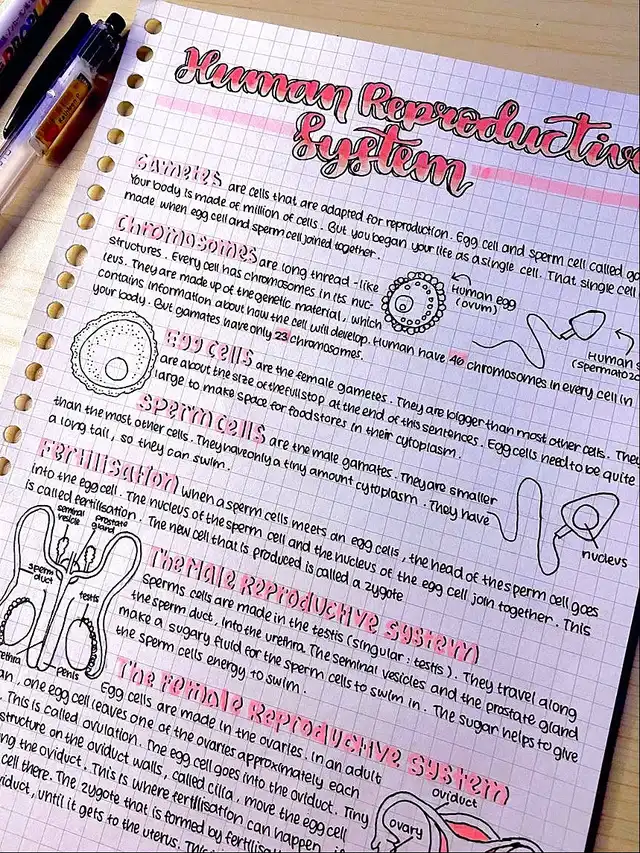 Human Reproductive
System
Gametes are cells that are adapted for reproduction. Egg cell and sperm cell called
Your body is made of million of cells. But you began your life as a single cell. That single cell
made when egg cell and sperm cell joined together.
Chromosomes are long thread-like
structures. Every cell has chromosomes in its nuc-
leus. They are made up of the genetic material, which
contains information about how the cell will develop. Human have 46 chromosomes in every cell in
your body. But gamates have only 23 chromosomes.
Human egg
(ovum)
Human
Egg cells are the female gametes. They are bigger than most other cells. They
are about the size of the full stop at the end of this sentences. Egg cells need to be quite
large to make space for food stores in their cytoplasm.
Sperm cells are the male gamates. They are smaller
than the most other cells. They have only a tiny amount cytoplasm. They have
a long tail, so they can swim.
nucleus
Fertilisation when a sperm cells meets an egg cells, the head of the sperm cell goes
into the egg cell. The nucleus of the sperm cell and the nucleus of the egg cell join together. This
is called fertilisation. The new cell that is produced is called a zygote
seminal
vesicle
prostate
gland
sperm
duct
testis
penis
The Male Reproductive System
Sperms cells are made in the testis (singular: testis). They travel along
the sperm duct, into the urethra. The seminal vesicles and the prostate gland
make a sugary fluid for the sperm cells to swim in. The sugar helps to give
the sperm cells energy to swim.
The Female Reproductive System
Egg cells are made in the ovaries. in an adult
, one egg cell leaves one of the ovaries approximately each
. This is called ovulation. The egg cell goes into the oviduct. Tiny
structure on the oviduct walls, called cilia, move the egg cell
the oviduct. This is where fertilisation can happen, if
cell there. The zygote that is formed by
, until it gets to the uterus.
oviduct
ovary